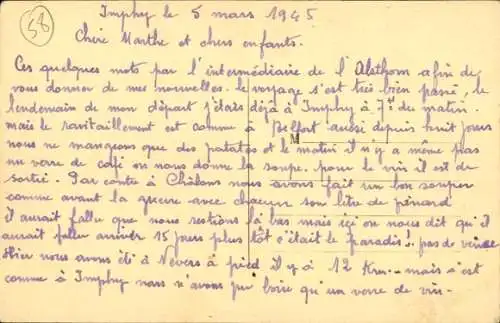 58
Imphy le 5 mars 1945
Chère Marthe et chers enfants.
Ces quelques mots par l'intermédiaire de l'Alsthom afin de
vous donner de mes nouvelles. le voyage s'est très bien passé, le
lendemain de mon départ j'étais déjà à Imphy à 7h du matin.
mais le ravitaillement est comme à Belfort aussi depuis huit jours
nous ne mangeons que des patates et le matin il n y a même pas
un verre de café on nous donne la soupe. pour le vin il est de
sortie. Par contre à Châlons nous avons fait un bon souper
comme avant la guerre avec chacun son litre de pinard
il aurait fallu que nous restions là bas mais ici on nous dit qu'il
aurait fallu arriver 15 jours plus tôt c'était le paradis. pas de veine
Hier nous avons été à Nevers à pied il y a 12 Km.. mais c'est
comme à Imphy nous n'avons pu boire qu'un verre de vin.